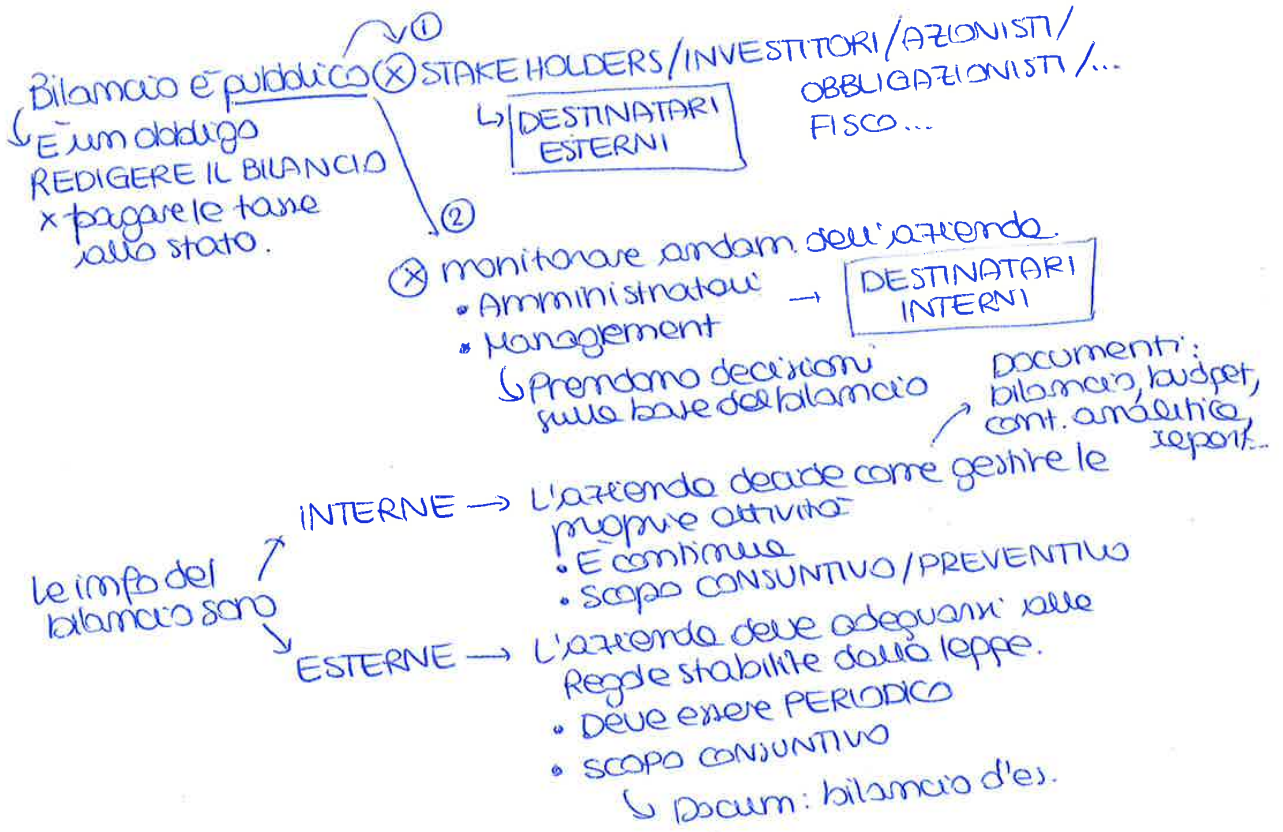 ①
Bilancio è pubblico ⓧ STAKEHOLDERS/INVESTITORI/AZIONISTI/
OBBLIGAZIONISTI/...
FISCO...
↳ DESTINATARI
ESTERNI
↳ È un obbligo
REDIGERE IL BILANCIO
x pagare le tasse
allo stato.
②
ⓧ monitorare andam. dell'azienda.
• Amministratori
• Management
→ DESTINATARI
INTERNI
↳ Prendono decisioni
sulla base del bilancio
Documenti:
bilancio, budget,
cont. analitica,
report...
Le info del
bilancio sono
INTERNE → L'azienda decide come gestire le
proprie attività
• È continua
• SCOPO CONSUNTIVO/PREVENTIVO
ESTERNE → L'azienda deve adeguarsi alle
Regole stabilite dalla legge.
• Deve essere PERIODICO
• SCOPO CONSUNTIVO
↳ Docum: bilancio d'es.